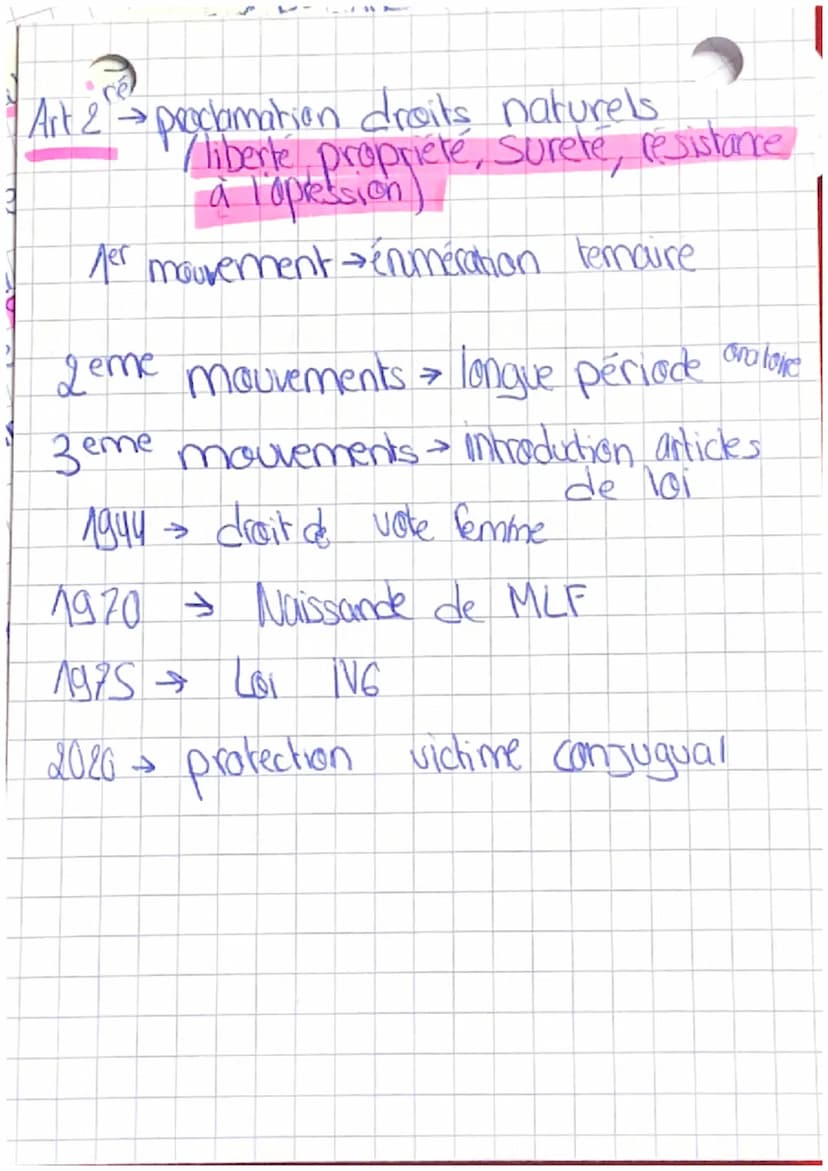 Art 2 → proclamation droits naturels
(liberté, propriété, sureté, résistance
à l'opression)
1er mouvement → énumération ternaire
2eme mouvements → longue période oratoire
3eme mouvements → introduction articles
de loi
1944 → droit de vote femme
1970 → Naissande de MLF
1975 → Loi IVG
2020 → protection victime conjugual